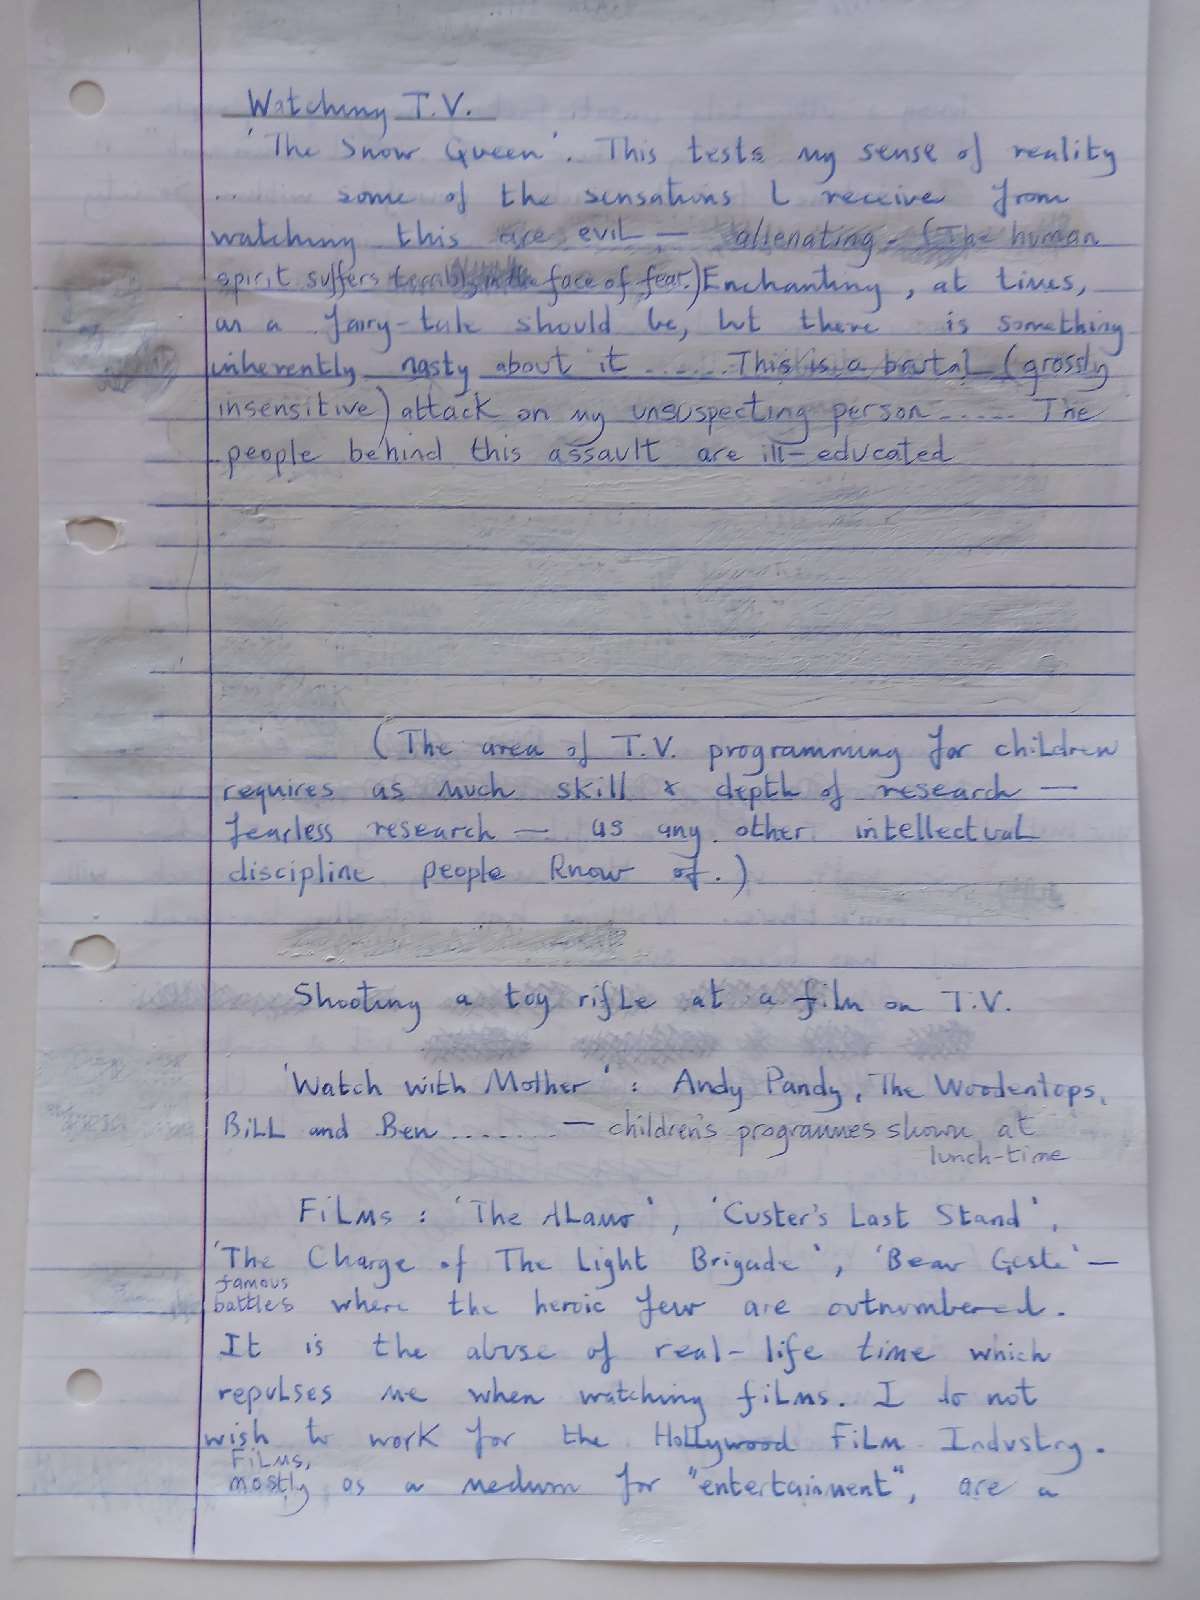 Watching T.V.
'The Snow Queen'. This tests my sense of reality
... some of the sensations I receive from
watching this are evil — alienating. (The human
spirit suffers terribly in the face of fear.) Enchanting, at times,
as a fairy-tale should be, but there is something
inherently nasty about it ...... This is a brutal (grossly
insensitive) attack on my unsuspecting person ..... The
people behind this assault are ill-educated
(The area of T.V. programming for children
requires as much skill & depth of research —
fearless research — as any other intellectual
discipline people know of.)
Shooting a toy rifle at a film on T.V.
'Watch with Mother': Andy Pandy, The Woodentops,
Bill and Ben ....... — children's programmes shown at
lunch-time
Films: 'The Alamo', 'Custer's Last Stand',
'The Charge of The Light Brigade', 'Beau Geste' —
famous
battles where the heroic few are outnumbered.
It is the abuse of real-life time which
repulses me when watching films. I do not
wish to work for the Hollywood Film Industry.
Films,
mostly as a medium for "entertainment", are a